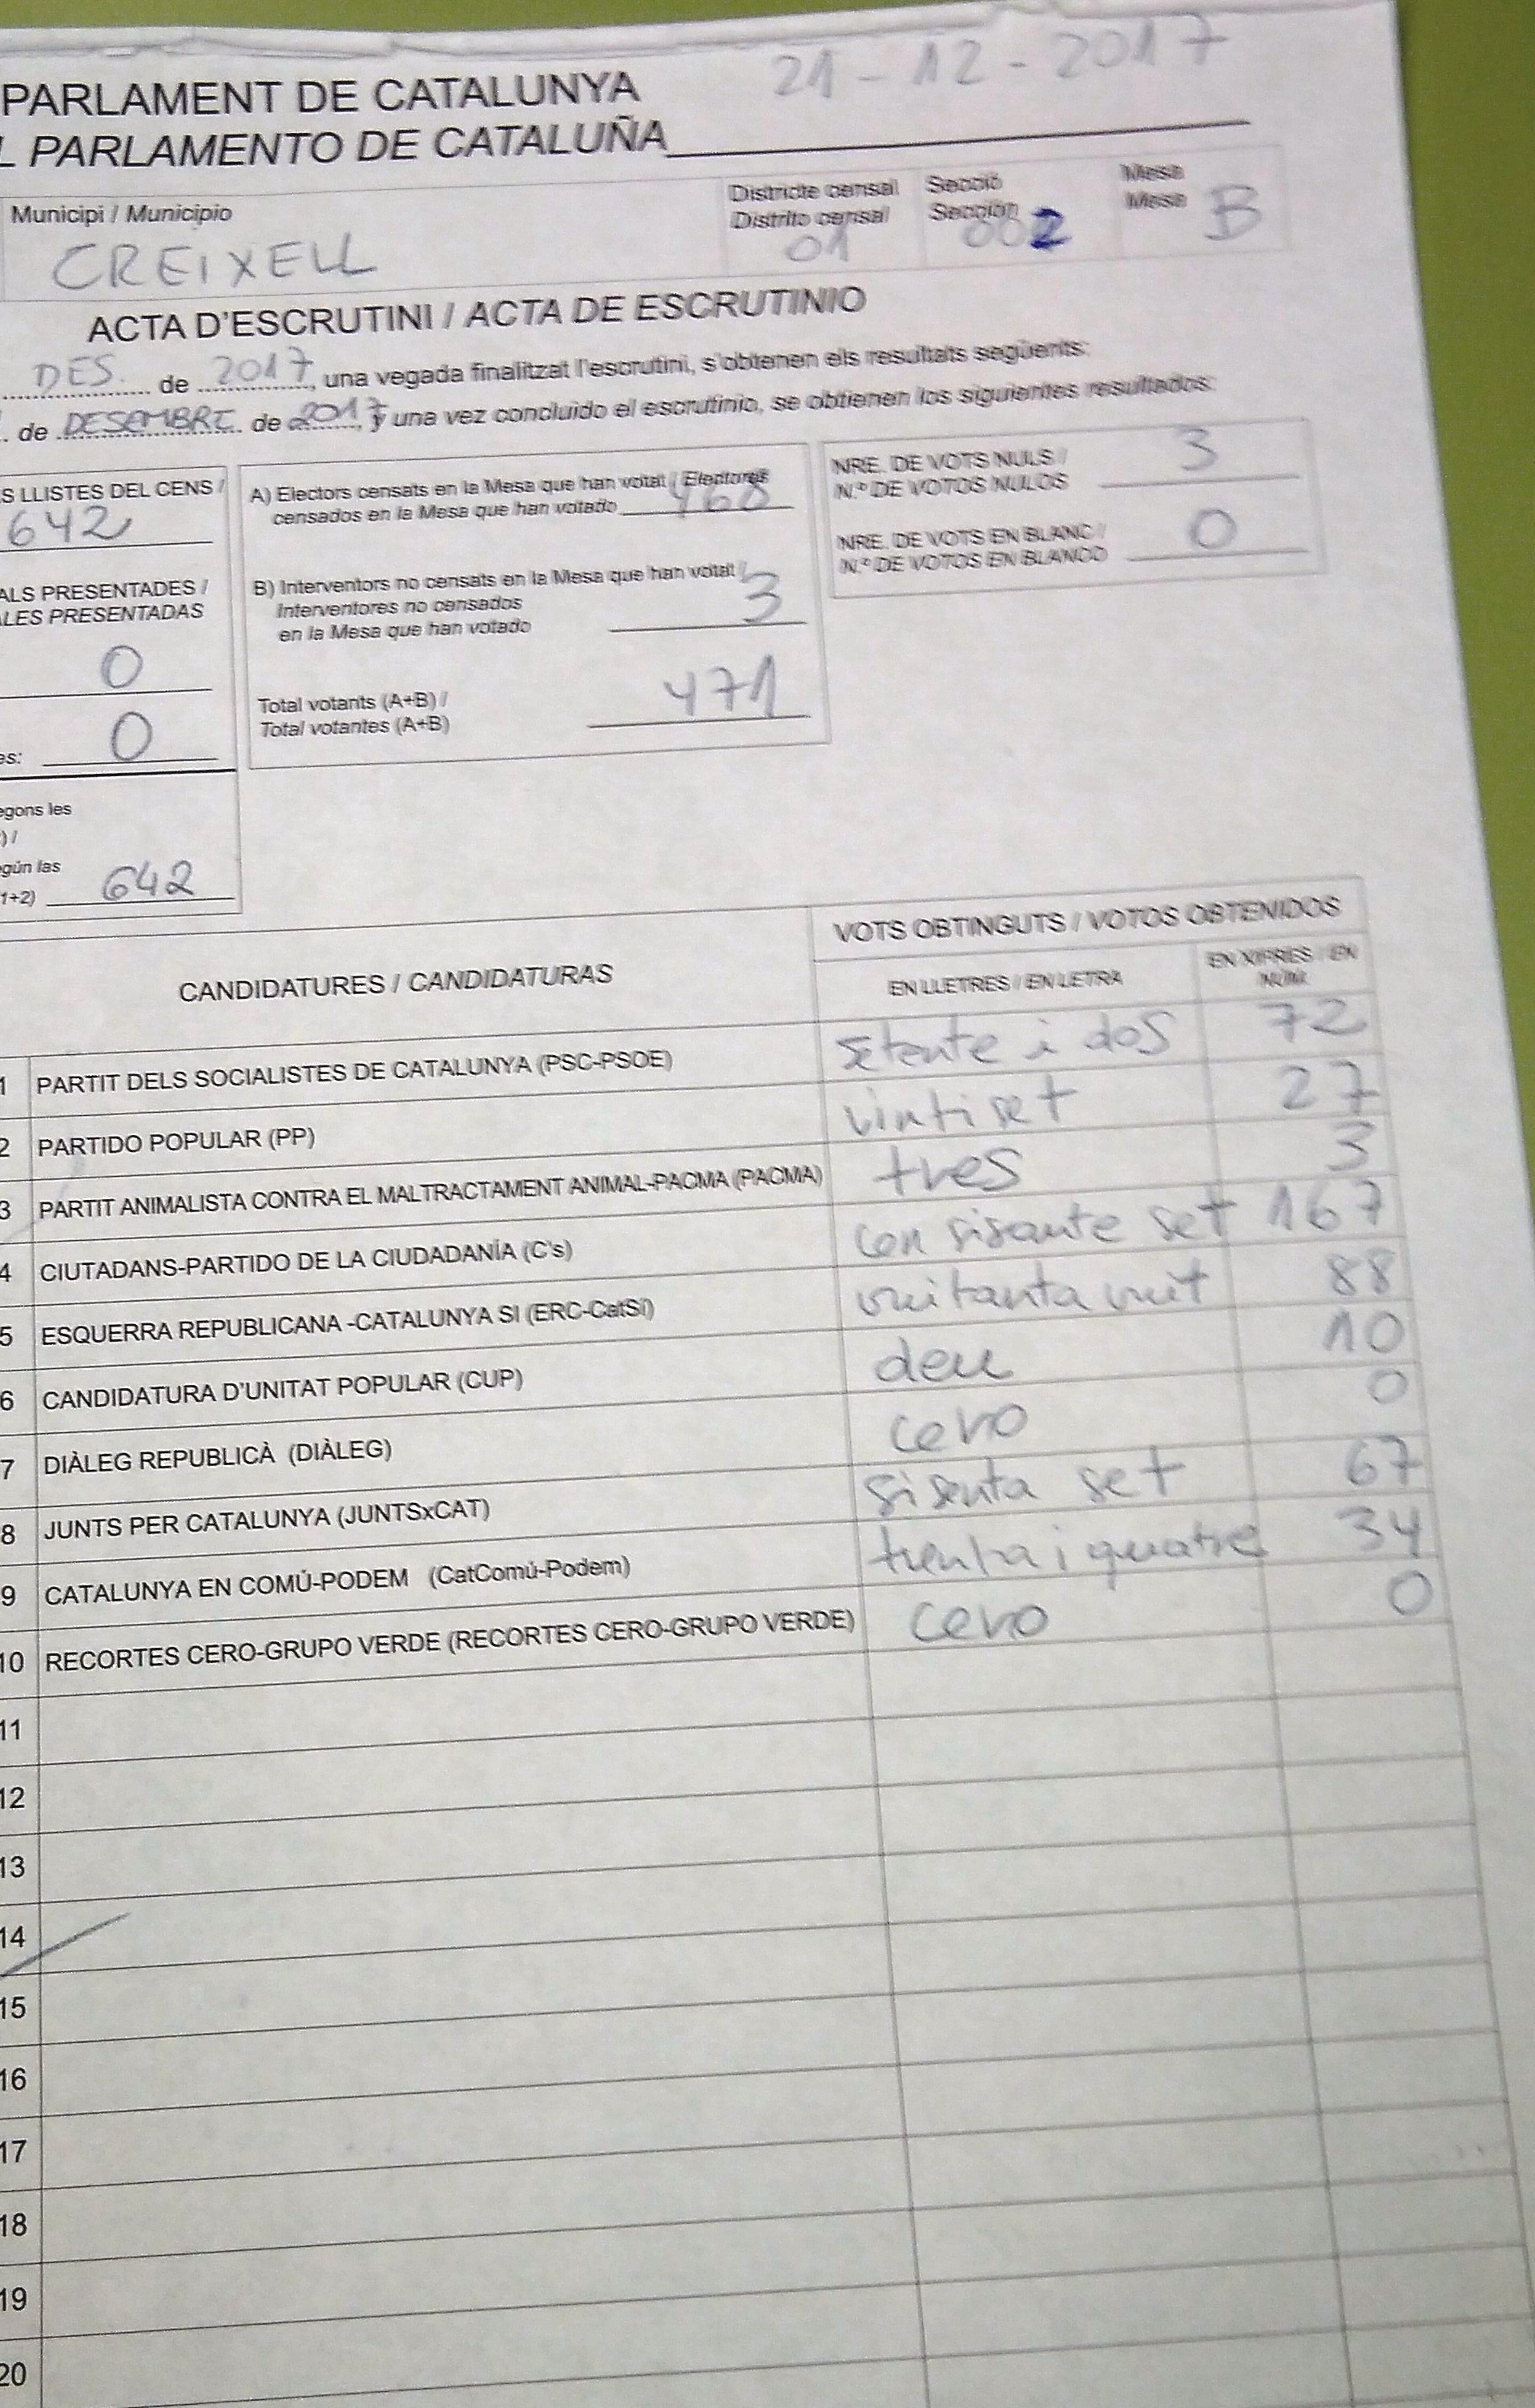 21-12-2017
PARLAMENT DE CATALUNYA
L PARLAMENTO DE CATALUÑA
Municipi / Municipio
CREIXELL
Districte censal
Distrito censal
01
Secció
Sección
002
Mesa
Mesa
B
ACTA D'ESCRUTINI / ACTA DE ESCRUTINIO
DES. de 2017, una vegada finalitzat l'escrutini, s'obtenen els resultats següents:
de DESEMBRE de 2017, y una vez concluido el escrutinio, se obtienen los siguientes resultados:
S LLISTES DEL CENS /
642
ALS PRESENTADES /
LES PRESENTADAS
0
es: 0
egons les
) /
gún las
1+2) 642
A) Electors censats en la Mesa que han votat / Electores
censados en la Mesa que han votado 468
B) Interventors no censats en la Mesa que han votat /
Interventores no censados
en la Mesa que han votado 3
Total votants (A+B) /
Total votantes (A+B) 471
NRE. DE VOTS NULS /
N.º DE VOTOS NULOS 3
NRE. DE VOTS EN BLANC /
N.º DE VOTOS EN BLANCO 0
CANDIDATURES / CANDIDATURAS
VOTS OBTINGUTS / VOTOS OBTENIDOS
EN LLETRES / EN LETRA
EN XIFRES / EN
NÚM.
1 PARTIT DELS SOCIALISTES DE CATALUNYA (PSC-PSOE) setente i dos 72
2 PARTIDO POPULAR (PP) vintiset 27
3 PARTIT ANIMALISTA CONTRA EL MALTRACTAMENT ANIMAL-PACMA (PACMA) tres 3
4 CIUTADANS-PARTIDO DE LA CIUDADANÍA (C's) cen sisante set 167
5 ESQUERRA REPUBLICANA -CATALUNYA SI (ERC-CatSí) vuitanta vuit 88
6 CANDIDATURA D'UNITAT POPULAR (CUP) deu 10
7 DIÀLEG REPUBLICÀ (DIÀLEG) cero 0
8 JUNTS PER CATALUNYA (JUNTSxCAT) sisenta set 67
9 CATALUNYA EN COMÚ-PODEM (CatComú-Podem) trenta i quatre 34
10 RECORTES CERO-GRUPO VERDE (RECORTES CERO-GRUPO VERDE) cero 0
11
12
13
14
15
16
17
18
19
20